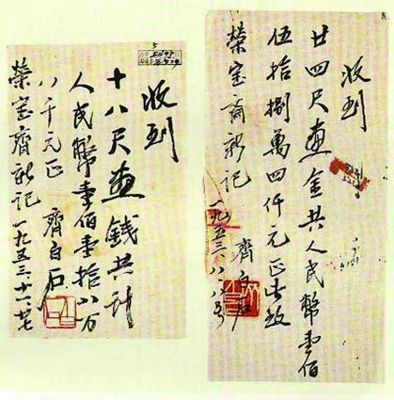 收到
廿四尺画金共人民幣壹佰
伍拾捌萬四仟元正此致
榮宝齋新記
齊白石
一九五三、八、八号
收到
十八尺画錢共计
人民幣壹佰壹拾八万
八千元正
齊白石
榮宝齊新记
一九五三、十一、廿七